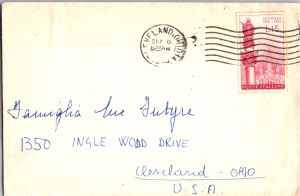 CLEVELAND, OHIO
SEP
L.15
POSTE ITALIANE
Famiglia Mc Intyre
1350 INGLE WOOD DRIVE
Cleveland - OHIO
U.S.A.